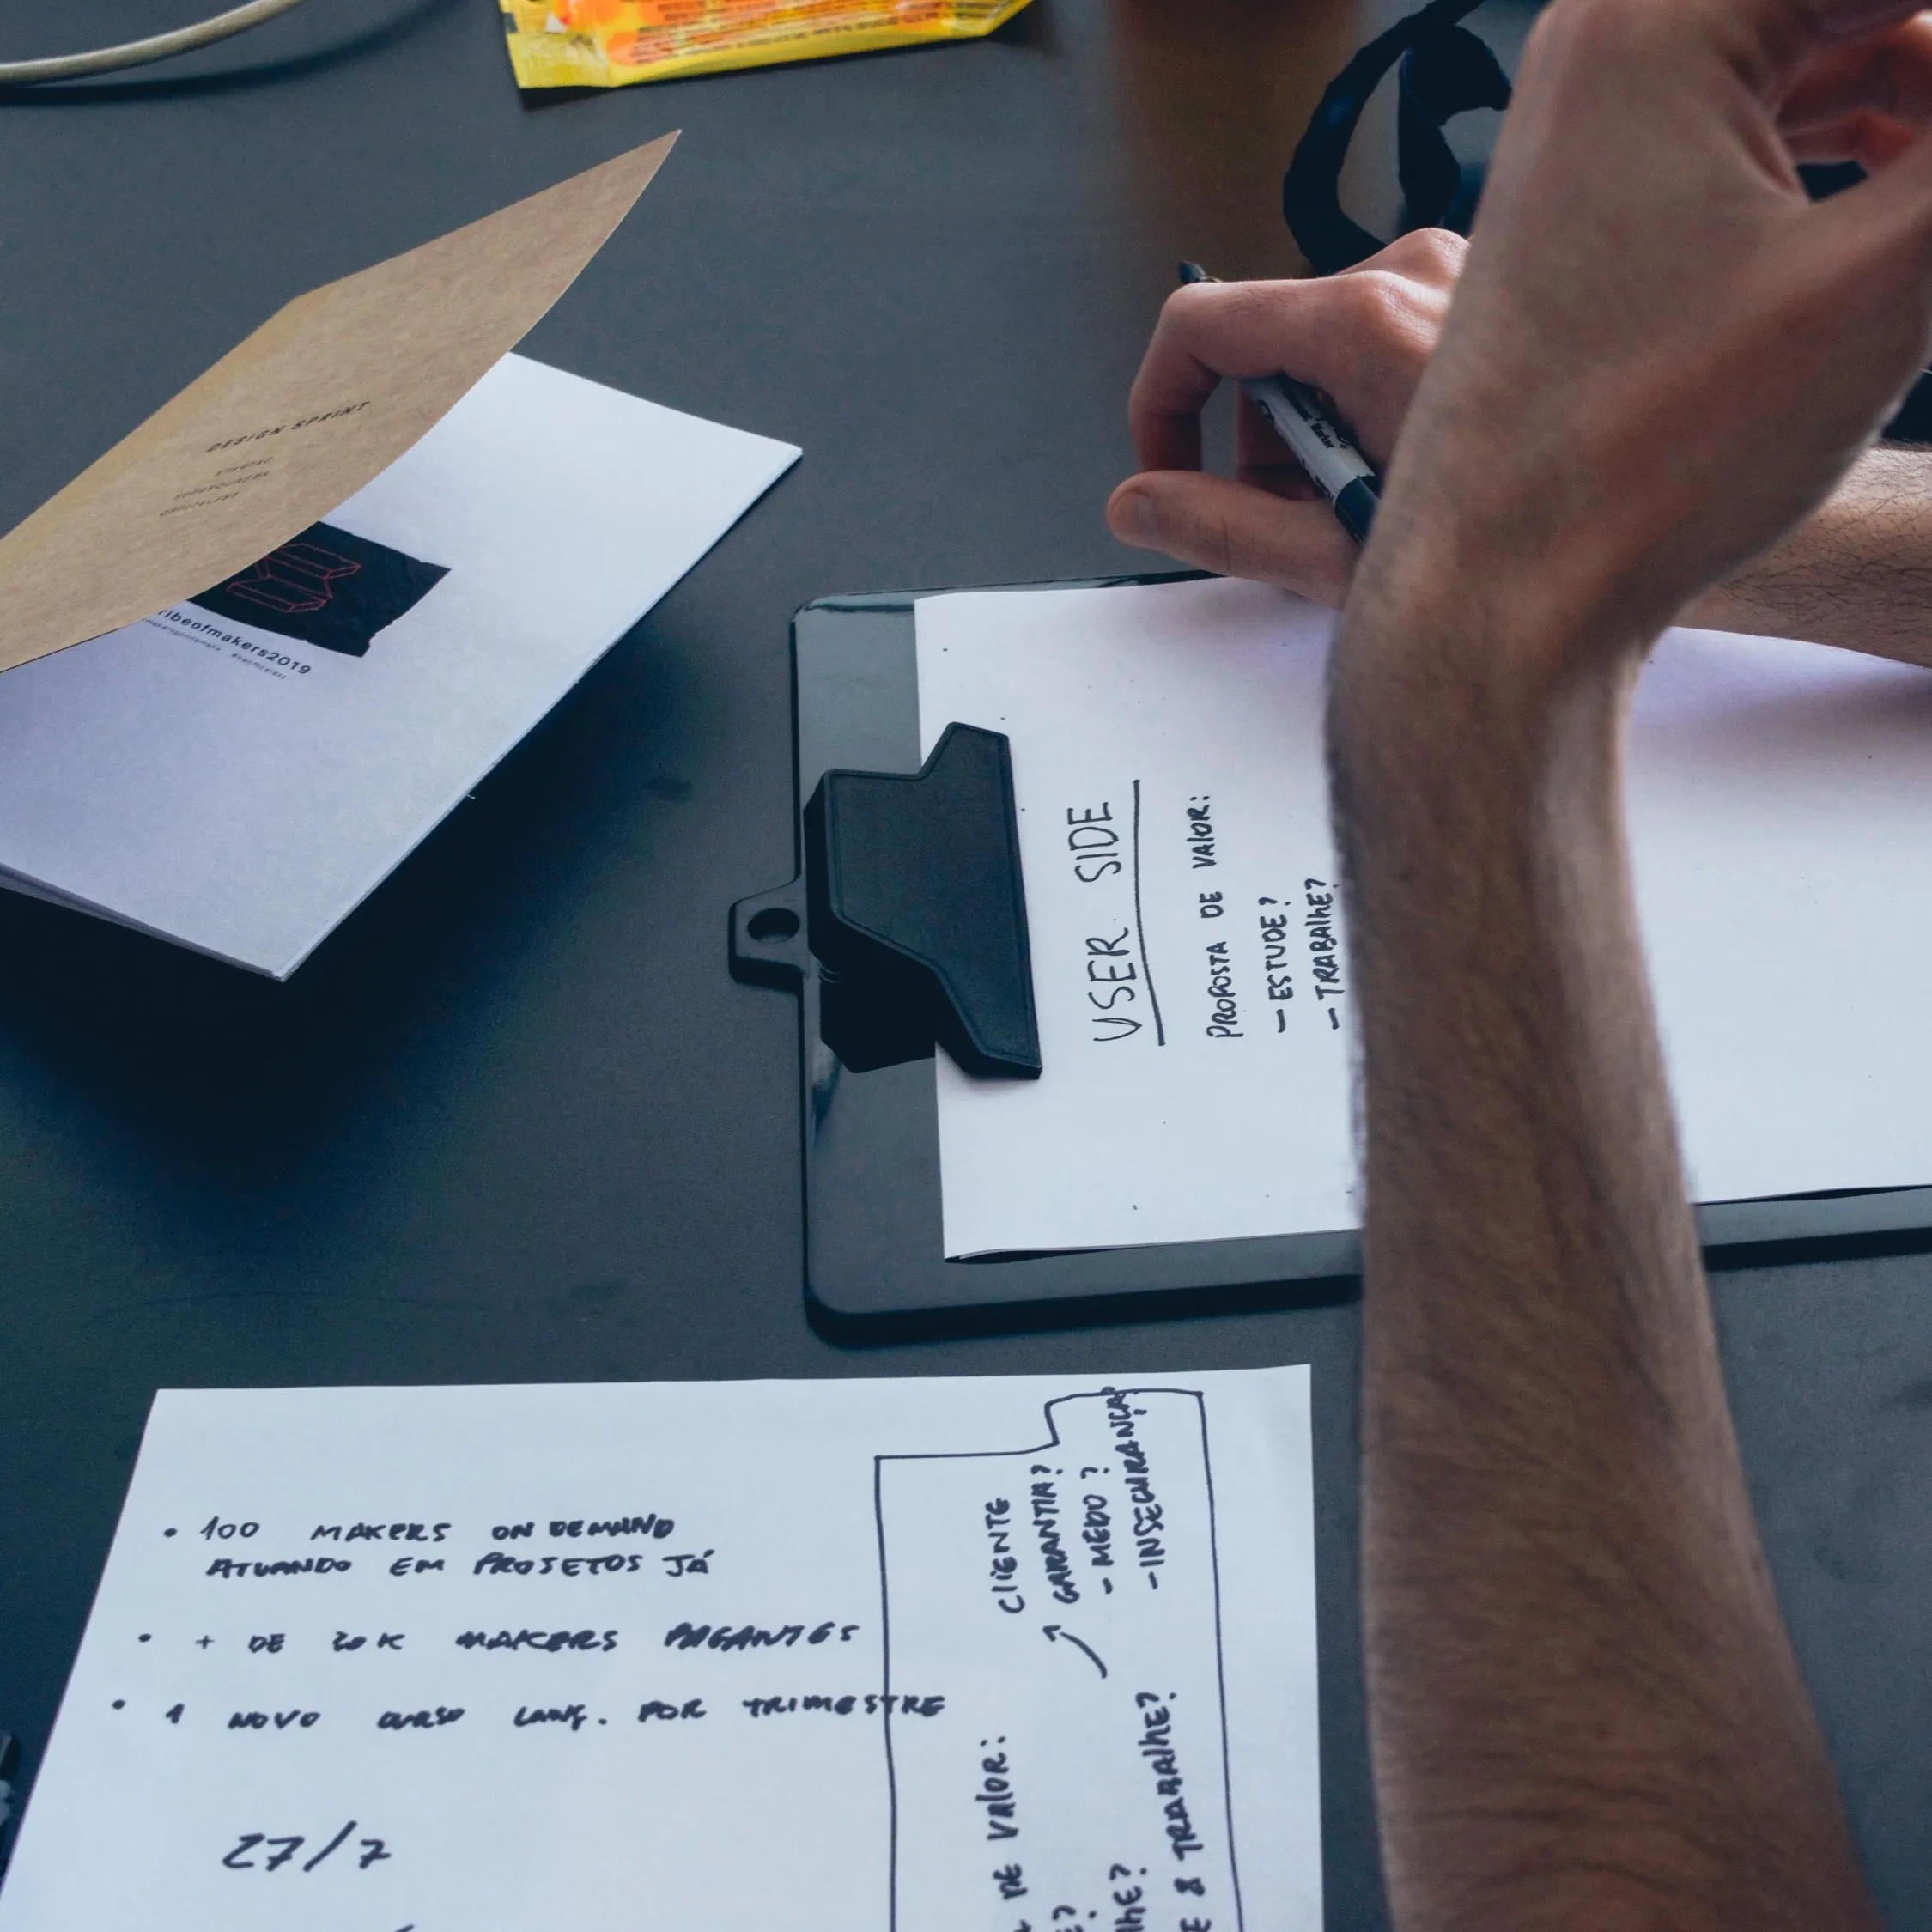 DESIGN SPRINT
ribeofmakers2019
USER SIDE
PROPOSTA DE VALOR:
- ESTUDE?
- TRABALHE?
• 100 MAKERS ON DEMAND
ATUANDO EM PROJETOS JÁ
• + DE 20K MAKERS PAGANTES
• 1 NOVO CURSO LANÇ. POR TRIMESTRE
27/7
CLIENTE
GARANTIA?
- MEDO?
- INSEGURANÇA?
DE VALOR:
E?
LHE?
E & TRABALHE?